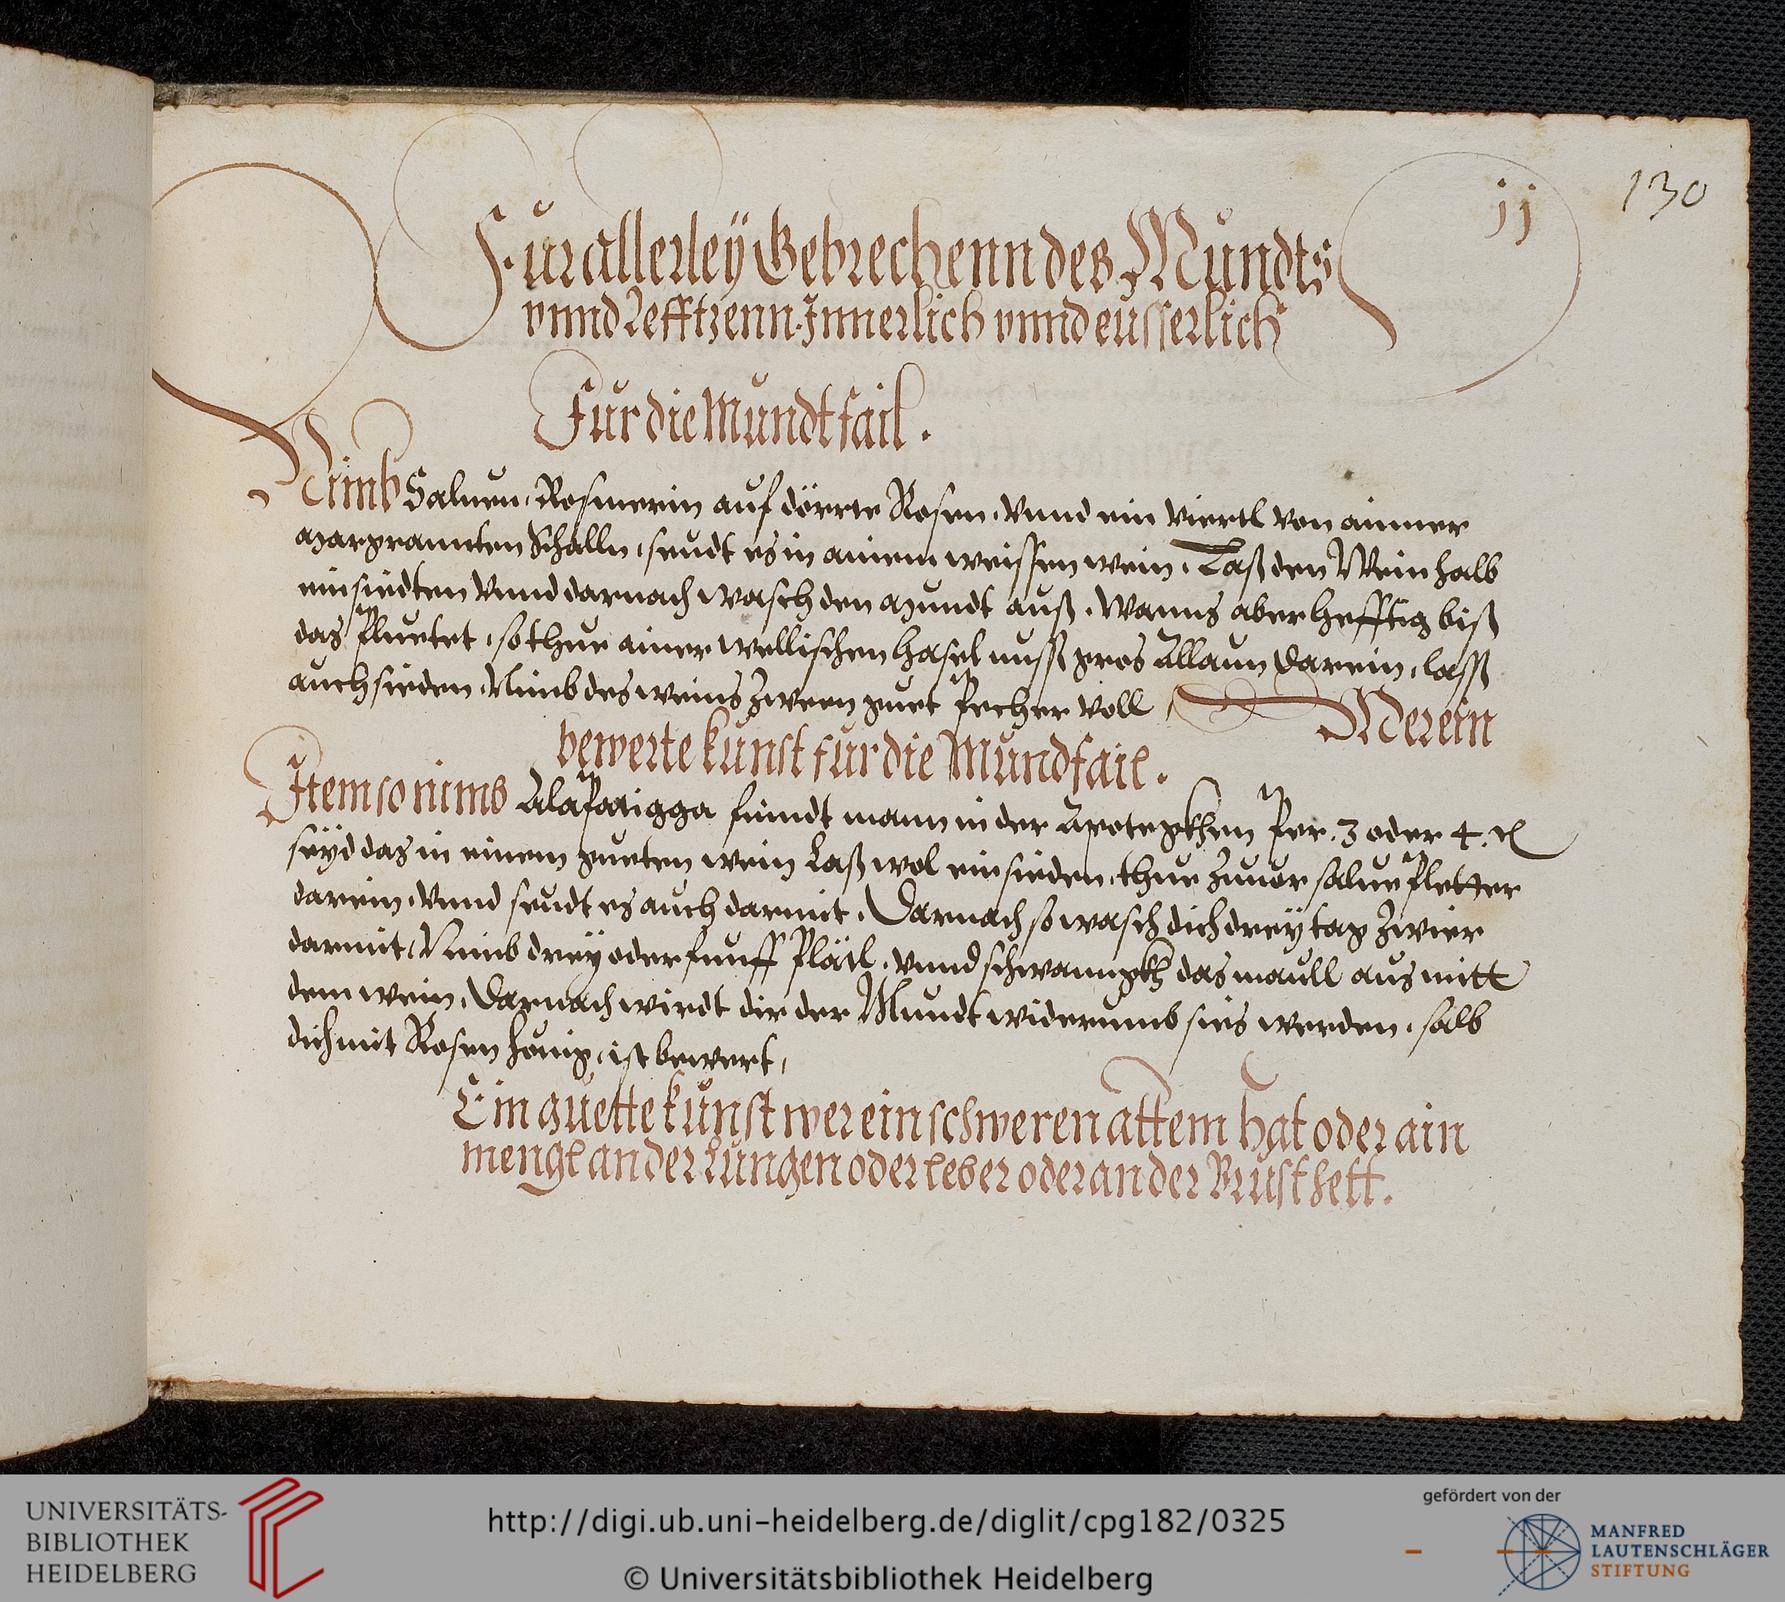 jj
130
Fur allerleÿ Gebrechenn des Mundts
vnnd Lefftzenn Jnnerlich vnnd eusserlich
Fur die Mundtfail.
Nimb Saluen, Rosmerin auf dörrte Rosen, Vnnd ein Viertl Von ainner
margrannten Schalln, seudt es in ainem weissen wein, Laß den Wein halb
einsiedten Vnnd darnach wasch den Mundt auß, Wanns aber hefftig biß
das pluetet, so thue ainer wellischen haselnuss gros Allaun darein, lass
auch sieden, Nimb des weins zween guet pecher voll
Mer ein
bewerte kunst fur die Mundfail.
Jtem so nimb findt mann in der Apotegkhen per. 3 oder 4.
seyd das in einem gueten wein Laß wol ein sieden, thue zuuor salue pletter
darein, vnnd seudt es auch darmit, Darnach so wasch dich drey tag zwier
darmit, Nimb drey oder funff vnnd schwanngkh das maull aus mitt
dem wein, Darnach wirdt dir der Mundt widerumb sies werden, salb
dich mit Rosen honig, ist bewert,
Ein guette kunst wer ein schweren attem hat oder ain
mengl an der Lungen oder leber oder an der Brust hett.
UNIVERSITÄTS-
BIBLIOTHEK
HEIDELBERG
http://digi.ub.uni-heidelberg.de/diglit/cpg182/0325
© Universitätsbibliothek Heidelberg
gefördert von der
MANFRED
LAUTENSCHLÄGER
STIFTUNG